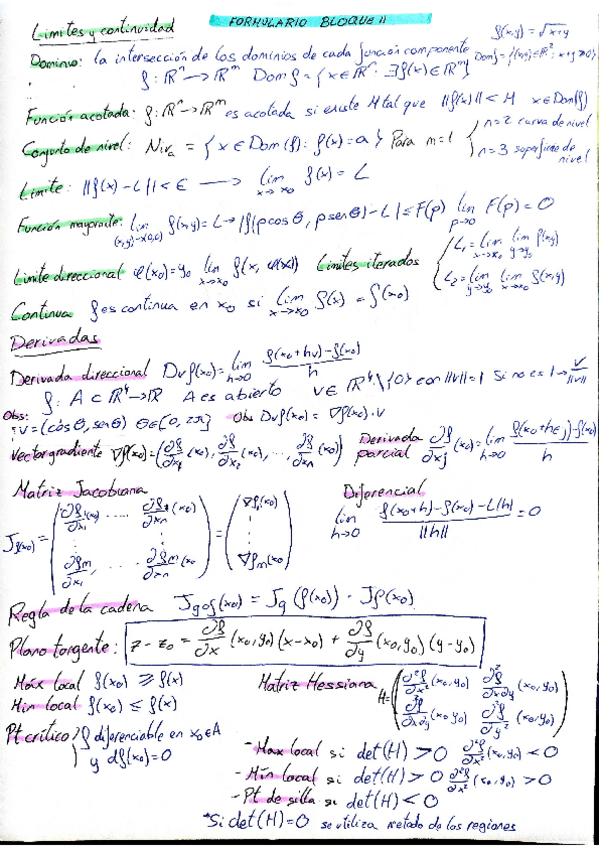 FORMULARIO BLOQUE II
Límites y continuidad
f(x,y) = √x+y
Dominio: la intersección de los dominios de cada función componente Domf={(x,y)∈ℝ²: x+y≥0}
f: ℝⁿ → ℝᵐ Dom f = {x∈ℝⁿ: ∃f(x)∈ℝᵐ}
Función acotada: f: ℝⁿ→ℝᵐ es acotada si existe M tal que ||f(x)|| < M x∈Dom(f)
Conjunto de nivel: Nivₐ = {x∈Dom(f): f(x)=a} Para m=1 { n=2 curva de nivel
n=3 superficie de nivel
Límite: ||f(x)-L||<ε → lim x→x₀ f(x) = L
Función mayorante: lim (x,y)→(0,0) f(x,y)=L→|f(ρcosθ, ρsenθ)-L|≤F(ρ) lim ρ→0 F(ρ)=0
Límite direccional φ(x₀)=y₀ lim x→x₀ f(x, φ(x)) Límites iterados { L₁ = lim x→x₀ lim y→y₀ f(x,y)
L₂ = lim y→y₀ lim x→x₀ f(x,y)
Continua f es continua en x₀ si lim x→x₀ f(x) = f(x₀)
Derivadas
Derivada direccional Dvf(x₀) = lim h→0 f(x₀+hv)-f(x₀) / h
f: A⊂ℝⁿ→ℝ A es abierto v∈ℝⁿ\{0} con ||v||=1 Si no es 1→ v/||v||
Obs: v=(cosθ, senθ) θ∈[0, 2π] Obs Dvf(x₀) = ∇f(x₀)·v
Vector gradiente ∇f(x₀) = (∂f/∂x₁ (x₀), ∂f/∂x₂ (x₀), ..., ∂f/∂xn (x₀)) Derivada parcial ∂f/∂xj (x₀) = lim h→0 f(x₀+hej)-f(x₀) / h
Matriz Jacobiana
Jf(x₀) = ( ∂f₁/∂x₁ (x₀) ..... ∂f₁/∂xn (x₀) ) = ( ∇f₁(x₀) )
( ∂fm/∂x₁ ..... ∂fm/∂xn (x₀) ) ( ∇fm(x₀) )
Diferencial
lim h→0 f(x₀+h)-f(x₀)-L(h) / ||h|| = 0
Regla de la cadena Jgof(x₀) = Jg(f(x₀)) · Jf(x₀)
Plano tangente: z-z₀ = ∂f/∂x (x₀,y₀)(x-x₀) + ∂f/∂y (x₀,y₀)(y-y₀)
Máx local f(x₀) ≥ f(x)
Mín local f(x₀) ≤ f(x)
Matriz Hessiana H = ( ∂²f/∂x² (x₀,y₀) ∂²f/∂x∂y (x₀,y₀) )
( ∂²f/∂x∂y (x₀,y₀) ∂²f/∂y² (x₀,y₀) )
Pt crítico f diferenciable en x₀∈A
y df(x₀)=0
- Max local si det(H) > 0 ∂²f/∂x² (x₀,y₀) < 0
- Mín local si det(H) > 0 ∂²f/∂x² (x₀,y₀) > 0
- Pt de silla si det(H) < 0
*Si det(H)=0 se utiliza metodo de las regiones